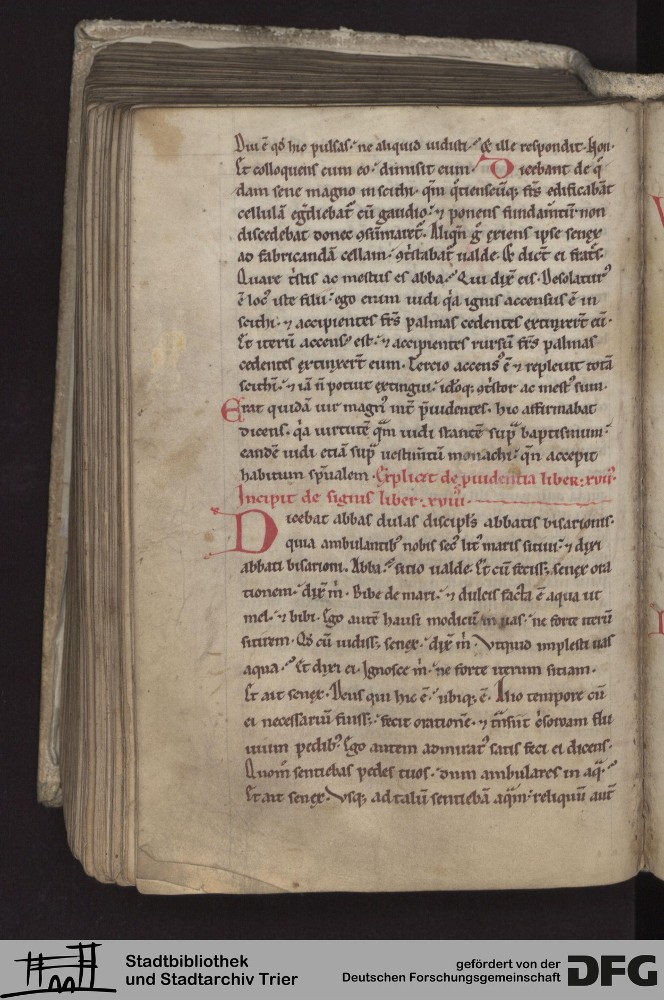 Diu ē qđ hic pulsas· ne aliquid uidisti· Et ille respondit· Non·
Et colloquens cum eo· dimisit eum· Dicebant de q̄
dam sene magno in scithi· qm̄ q̄nciensciūq; frs̄ edificabāt
cellulā egr̄diebat̄ cū gaudio· ⁊ ponens fundam̄tū· non
discedebat donec ꝯsūmaret̄· Aliqn̄ g̊ exiens ipse senex
ad fabricandā cellam· ꝯtristabat̄ ualde· Et dict̄ ei frat̄s·
Quare t̄stis ac mestus es abba· Qui dix̄ eis· Desolatur
ē locꝰ iste filii· ego enim uidi q̇a ignis accensus ē in
scithi· ⁊ accipientes frs̄ palmas cedentes extinxer̄t eū·
Et iterū accensꝰ est· ⁊ accipientes rursū frs̄ palmas
cedentes extinxer̄t eum· Tercio accensꝰ ē ⁊ repleuit totā
scithī· ⁊ iā n̄ potuit extingui· idoq; ꝯt̄stor ac mestꝰ sum·
Erat quidā uir magnꝰ int̄ p̄uidentes· hic affirmabat
dicens· q̇a uirtutē quā uidi stantē sup̄ baptismum·
eandē uidi etiā sup̄ uestim̄tū monachi· qn̄ accepit
habitum sp̄ualem· Explicit de p̄uidentia liber· xvii·
Incipit de signis liber· xviii·
Dicebat abbas dulas discipl̄s abbatis bisarionis·
quia ambulantibꝰ nobis sec̄ litꝰ maris sitiui· ⁊ dixi
abbati bisarioni· Abba· sitio ualde· Et cū fecisš· senex ora
tionem· dix̄ m̄· Bibe de mari· ⁊ dulcis facta ē aqua ut
mel· ⁊ bibi· Ego autē hausi modicū in uas· ne forte iterū
sitirem· Qđ cū uidisš; senex· dix̄ m̄· Vtquid implesti uas
aqua· Et dixi ei· Ignosce m̄· ne forte iterum sitiam·
Et ait senex· Deus qui hic ē· ubiq; ē· Alio tempore cū
ei necessariū fuisš· fecit orationē· ⁊ t̄nsiit crisoroam flu
uium pedibꝰ· Ego autem admiratꝰ satis feci ei dicens·
Quom̄ sentiebas pedes tuos· dum ambulares in aq̄·
Et ait senex· Vsq; ad talū sentiebā aq̄m· reliquū aut̄
Stadtbibliothek
und Stadtarchiv Trier
gefördert von der
Deutschen Forschungsgemeinschaft
DFG